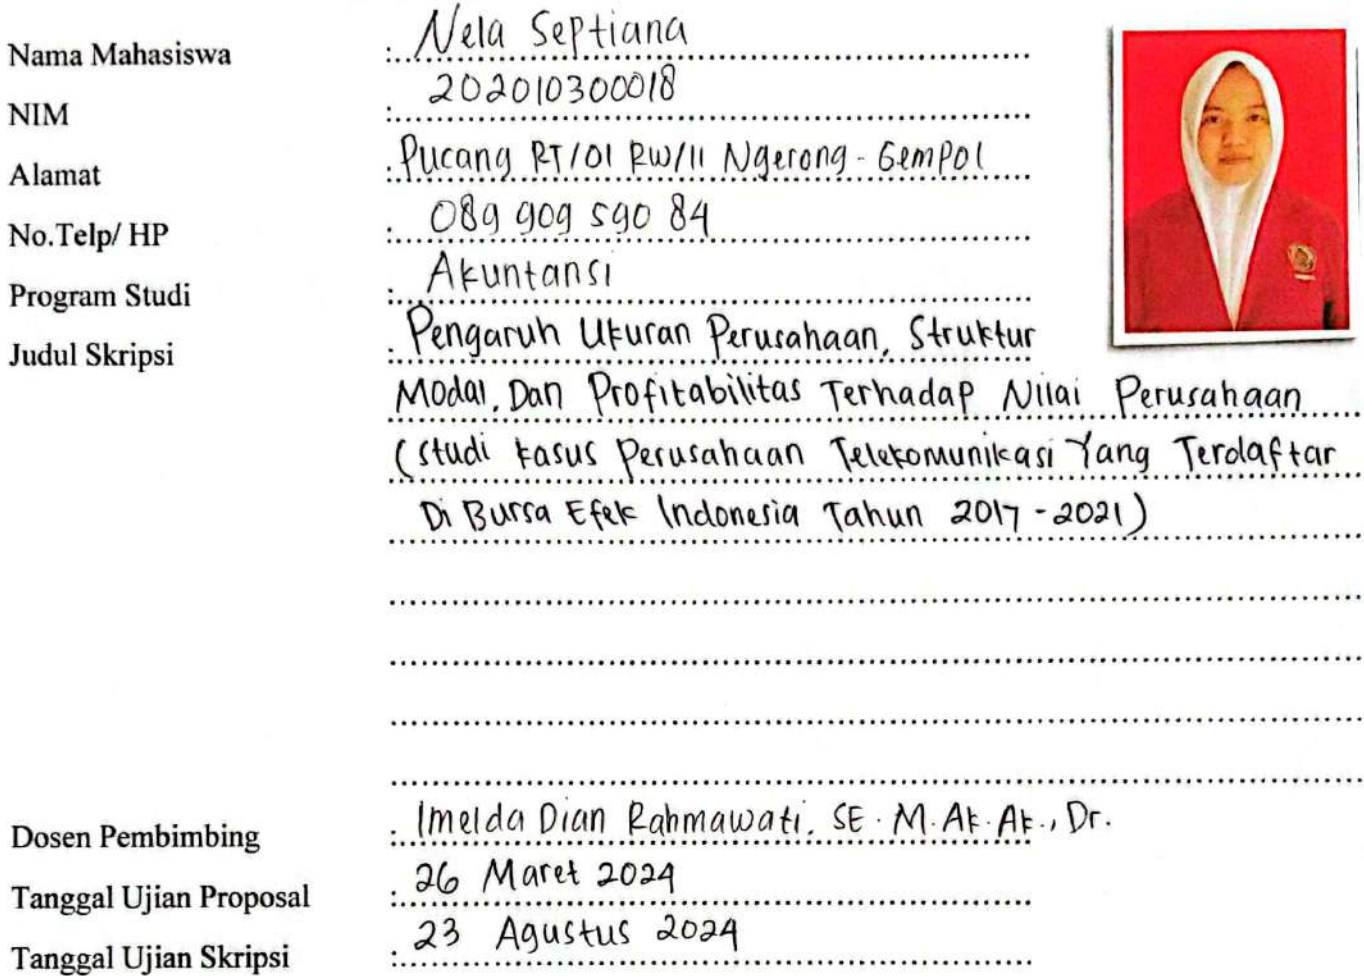 Nama Mahasiswa : Nela Septiana
NIM : 202010300018
Alamat : Pucang RT/01 RW/11 Ngerong - Gempol
No.Telp/ HP : 089 909 590 84
Program Studi : Akuntansi
Judul Skripsi : Pengaruh Ukuran Perusahaan, Struktur
Modal, Dan Profitabilitas Terhadap Nilai Perusahaan
(Studi kasus Perusahaan Telekomunikasi Yang Terdaftar
Di Bursa Efek Indonesia Tahun 2017 - 2021)
Dosen Pembimbing : Imelda Dian Rahmawati, SE. M.Ak.Ak., Dr.
Tanggal Ujian Proposal : 26 Maret 2024
Tanggal Ujian Skripsi : 23 Agustus 2024